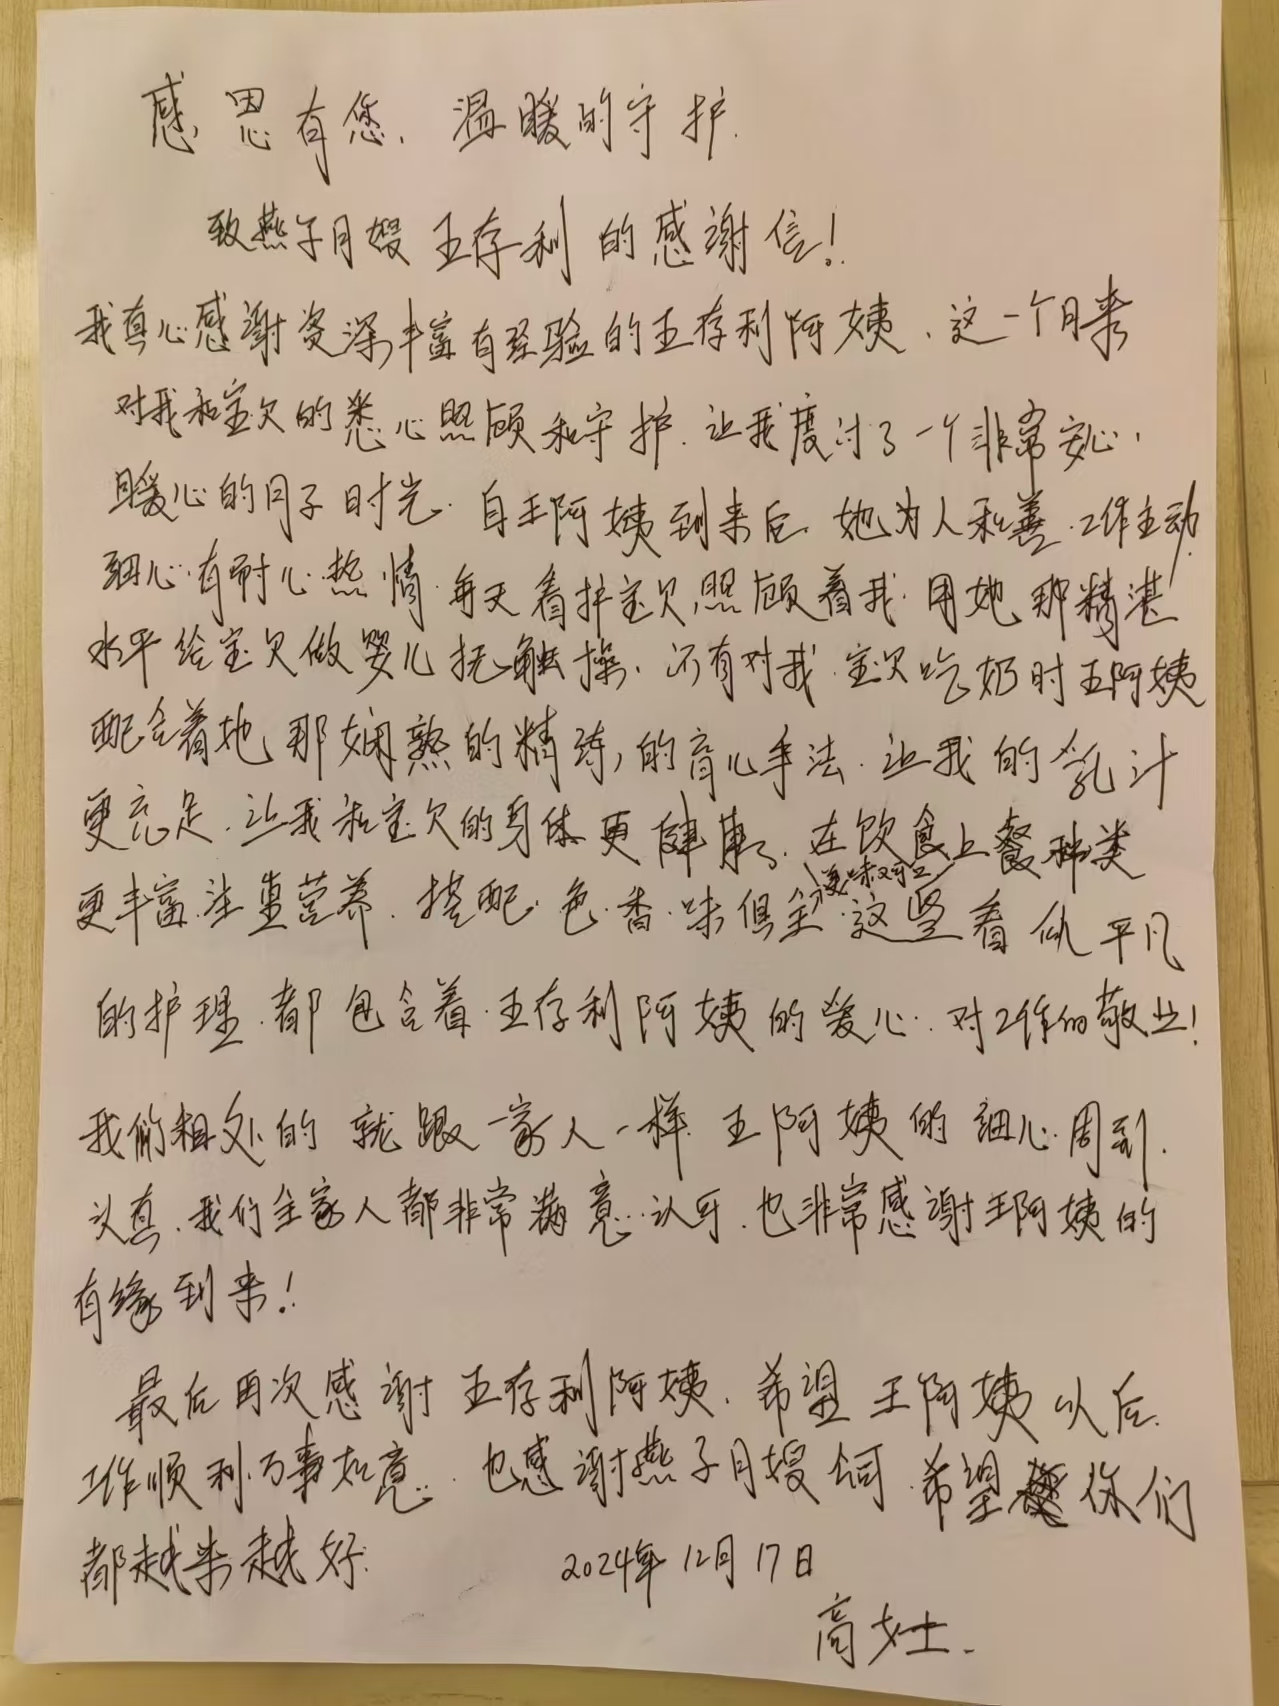 感恩有您.温暖的守护.
致燕子月嫂王存利的感谢信!
我真心感谢资深丰富有经验的王存利阿姨.这一个月来
对我和宝贝的悉心照顾和守护.让我度过了一个非常安心,
暖心的月子时光.自王阿姨到来后.她为人和善.工作主动
细心.有耐心.热情.每天看护宝贝,照顾着我.用她那精湛
水平给宝贝做婴儿抚触操.还有对我.宝贝吃奶时王阿姨
配合着她那娴熟的精练,的育儿手法.让我的乳汁
更充足.让我和宝贝的身体更健康了.在饮食上餐种类
更丰富.注重营养.搭配.色.香.味俱全.这些看似平凡
的护理.都包含着.王存利阿姨的爱心.对工作的敬业!
我们相处的就跟一家人一样.王阿姨的细心.周到.
认真.我们全家人都非常满意.认可.也非常感谢王阿姨的
有缘到来!
最后再次感谢王存利阿姨.希望王阿姨以后.
工作顺利.万事如意.也感谢燕子月嫂公司.希望你们
都越来越好.
2024年12月17日
高女士.